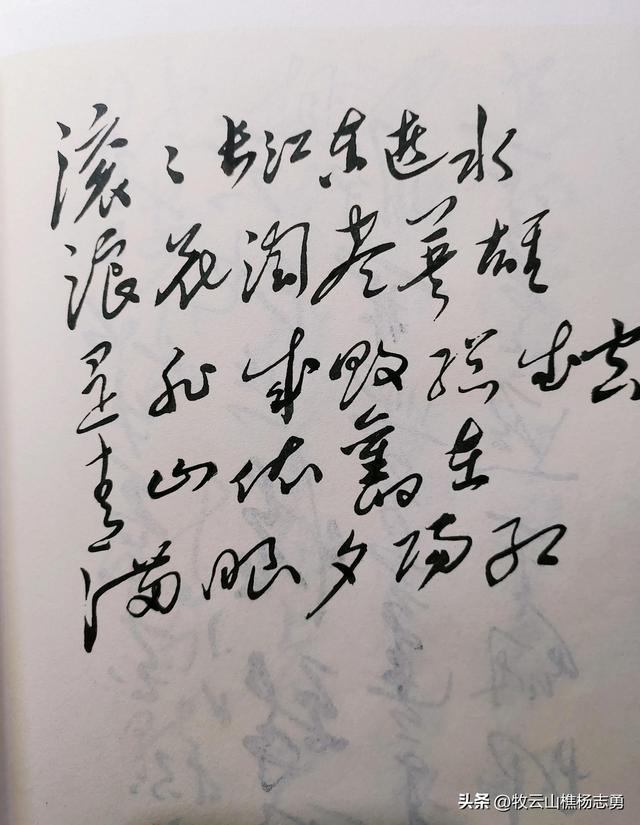 滚〻长江东逝水
浪花淘尽英雄
是非成败總成空
青山依舊在
满眼夕阳红
头条 @牧云山樵杨志勇